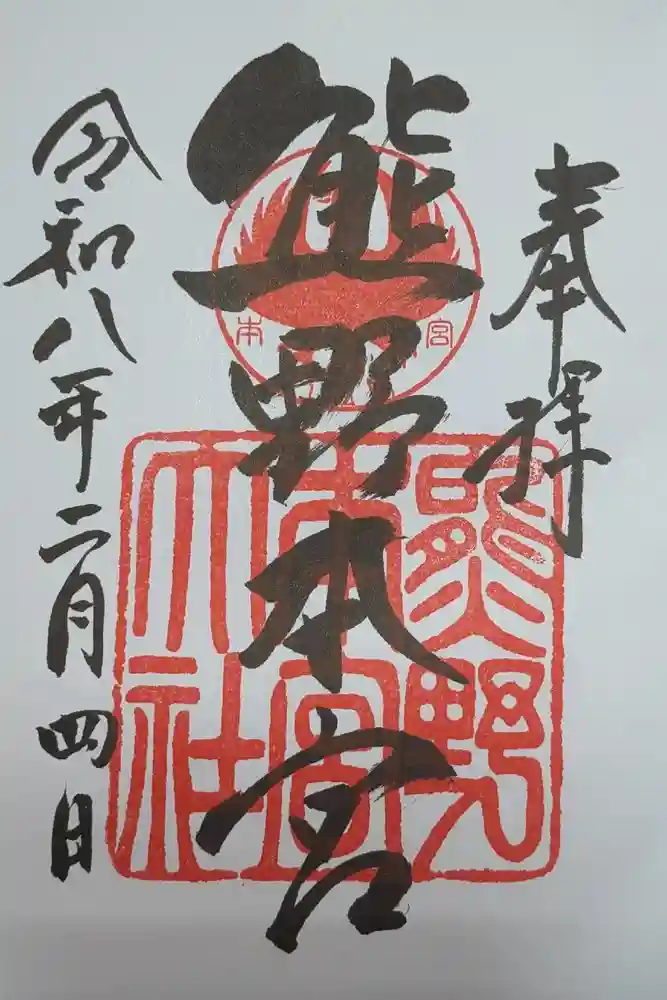 奉拝
熊野本宮
令和八年二月四日
熊野
本宮
大社
本
宮